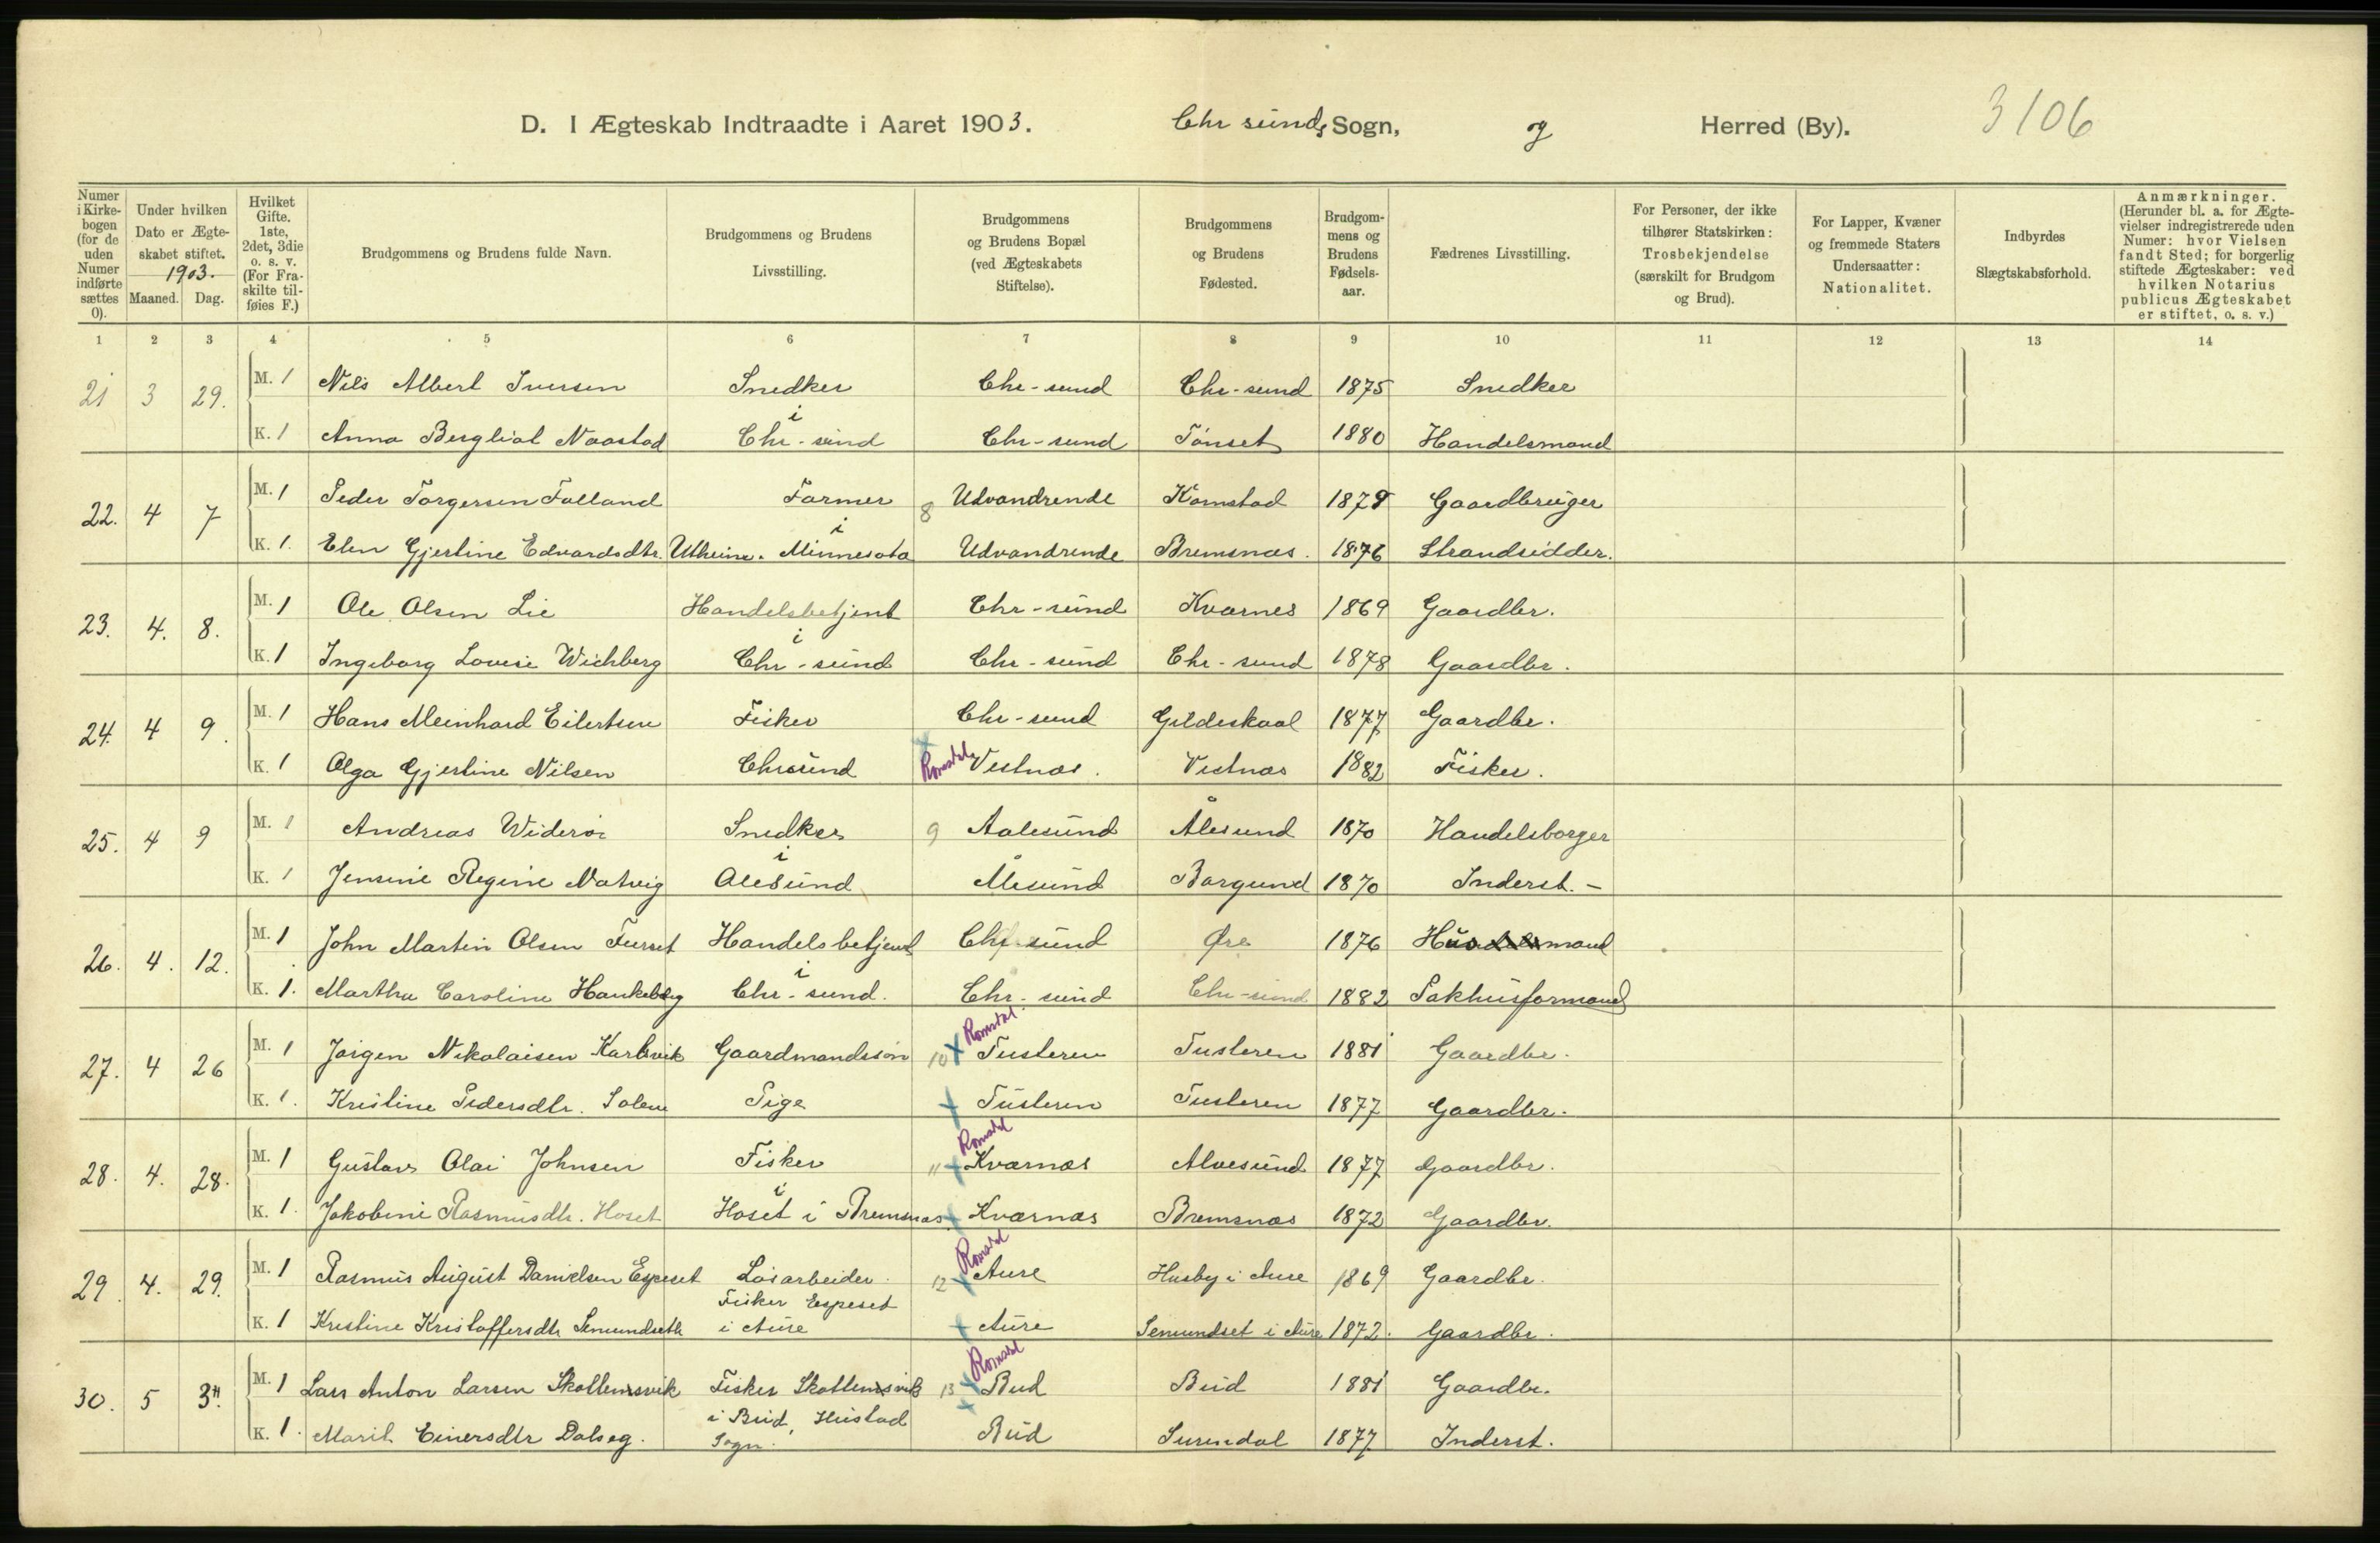 D. I Ægteskab Indtraadte i Aaret 1903. Chr sunds Sogn, og Herred (By). 3106
Numer i Kirke-bogen (for de uden Numer indførte sættes 0). Under hvilken Dato er Ægte-skabet stiftet. 1903. Maaned. Dag. Hvilket Gifte. 1ste, 2det, 3die o. s. v. (For Fra-skilte til-føies F.) Brudgommens og Brudens fulde Navn. Brudgommens og Brudens Livsstilling. Brudgommens og Brudens Bopæl (ved Ægteskabets Stiftelse). Brudgommens og Brudens Fødested. Brudgom-mens og Brudens Fødsels-aar. Fædrenes Livsstilling. For Personer, der ikke tilhører Statskirken: Trosbekjendelse (særskilt for Brudgom og Brud). For Lapper, Kvæner og fremmede Staters Undersaatter: Nationalitet. Indbyrdes Slægtskabsforhold. Anmærkninger. (Herunder bl. a. for Ægte-vielser indregistrerede uden Numer: hvor Vielsen fandt Sted; for borgerlig stiftede Ægteskaber: ved hvilken Notarius publicus Ægteskabet er stiftet, o. s. v.)
1 2 3 4 5 6 7 8 9 10 11 12 13 14
21 3 29. M. 1 Nils Albert Iversen Snedker Chr-sund Chr-sund 1875 Snedker
K. 1 Anna Bergliot Naastad i Chr-sund Chr-sund Tønset 1880 Handelsmand
22. 4 7 M. 1 Peder Torgersen Falland Farmer 8 Udvandrende Kornstad 1879 Gaardbruger
K. 1. Elen Gjertine Edvardsdtr. Utheim. i Minnesota Udvandrende Bremsnæs. 1876 Strandsidder.
23. 4. 8. M. 1 Ole Olsen Lie Handelsbetjent Chr-sund Kvernes 1869 Gaardbr.
K. 1 Ingeborg Lovise Wichberg i Chr-sund Chr-sund Chr-sund 1878 Gaardbr.
24. 4 9. M. 1 Hans Meinhard Eilertsen Fisker Chr-sund Gildeskaal 1877 Gaardbr.
K. 1 Olga Gjertine Nilsen Chrsund Romsdal Vestnæs. Vestnæs 1882 Fisker.
25. 4 9 M. 1 Andreas Widerøe Snedker 9 Aalesund Ålesund 1870 Handelsborger
K. 1 Jensine Regine Natvig i Alesund Ålesund Borgund 1870 Inderst. -
26. 4. 12. M. 1 John Martin Olsen Furset Handelsbetjent Chr sund Øre 1876 Husmand
K. 1. Martha Caroline Haukeberg i Chr-sund. Chr-sund Chr-sund 1882 Pakhusformand
27. 4 26 M. 1 Jørgen Nikolaisen Karlsvik Gaardmandssøn 10 x Romsdal. Tusteren Tusteren 1881 Gaardbr.
K. 1. Kristine Pedersdtr. Solem Pige x Tusteren Tusteren 1877 Gaardbr.
28. 4. 28. M. 1 Gustav Olai Johnsen Fisker 11 x Romsdal Kværnæs Alvesund 1877 Gaardbr.
K. 1. Jakobine Rasmusdtr. Hoset i Hoset i Bremsnæs. x Kværnæs Bremsnæs 1872 Gaardbr.
29. 4. 29. M. 1 Rasmus August Danielsen Espeset Løsarbeider. 12 x Romsdal Aure Husby i Aure 1869 Gaardbr.
Fisker Espeset
K. 1 Kristine Kristoffersdtr Semundseth i Aure x Aure Semundset i Aure 1872. Gaardbr.
30. 5 3. M. 1 Lars Anton Larsen Skottensvik Fisker Skottensvik 13 x Romsdal Bud Bud 1881 Gaardbr.
i Bud, Hustad
K. 1. Marit Einersdtr Dalseg. Sogn. Bud Surendal 1877 Inderst.